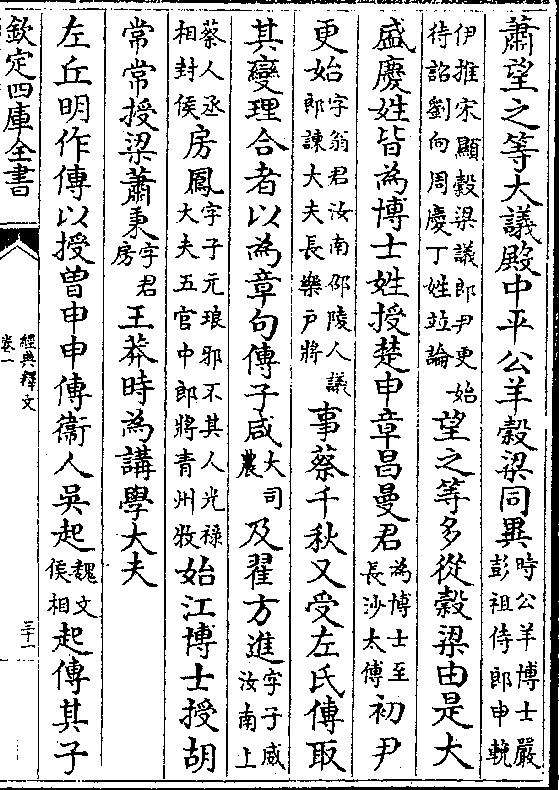 蕭望之等大議殿中平公羊穀梁同異時公羊博士嚴彭祖侍郎申輓
伊推宋顯穀梁議郎尹更始待詔劉向周慶丁姓竝論望之等多從穀梁由是大
盛慶姓皆為博士姓授楚申章昌曼君為博士至長沙太傅初尹
更始字翁君汝南邵陵人議郎諫大夫長樂戸將事蔡千秋又受左氏傳取
其變理合者以為章句傳子咸大司農及翟方進字子威汝南上
蔡人丞相封侯房鳳字子元琅邪不其人光祿大夫五官中郎將青州牧始江博士授胡
常常授梁蕭秉字君房王莽時為講學大夫
左丘明作傳以授曾申申傳衞人吳起魏文侯相起傳其子
欽定四庫全書
經典釋文
卷一
三十一